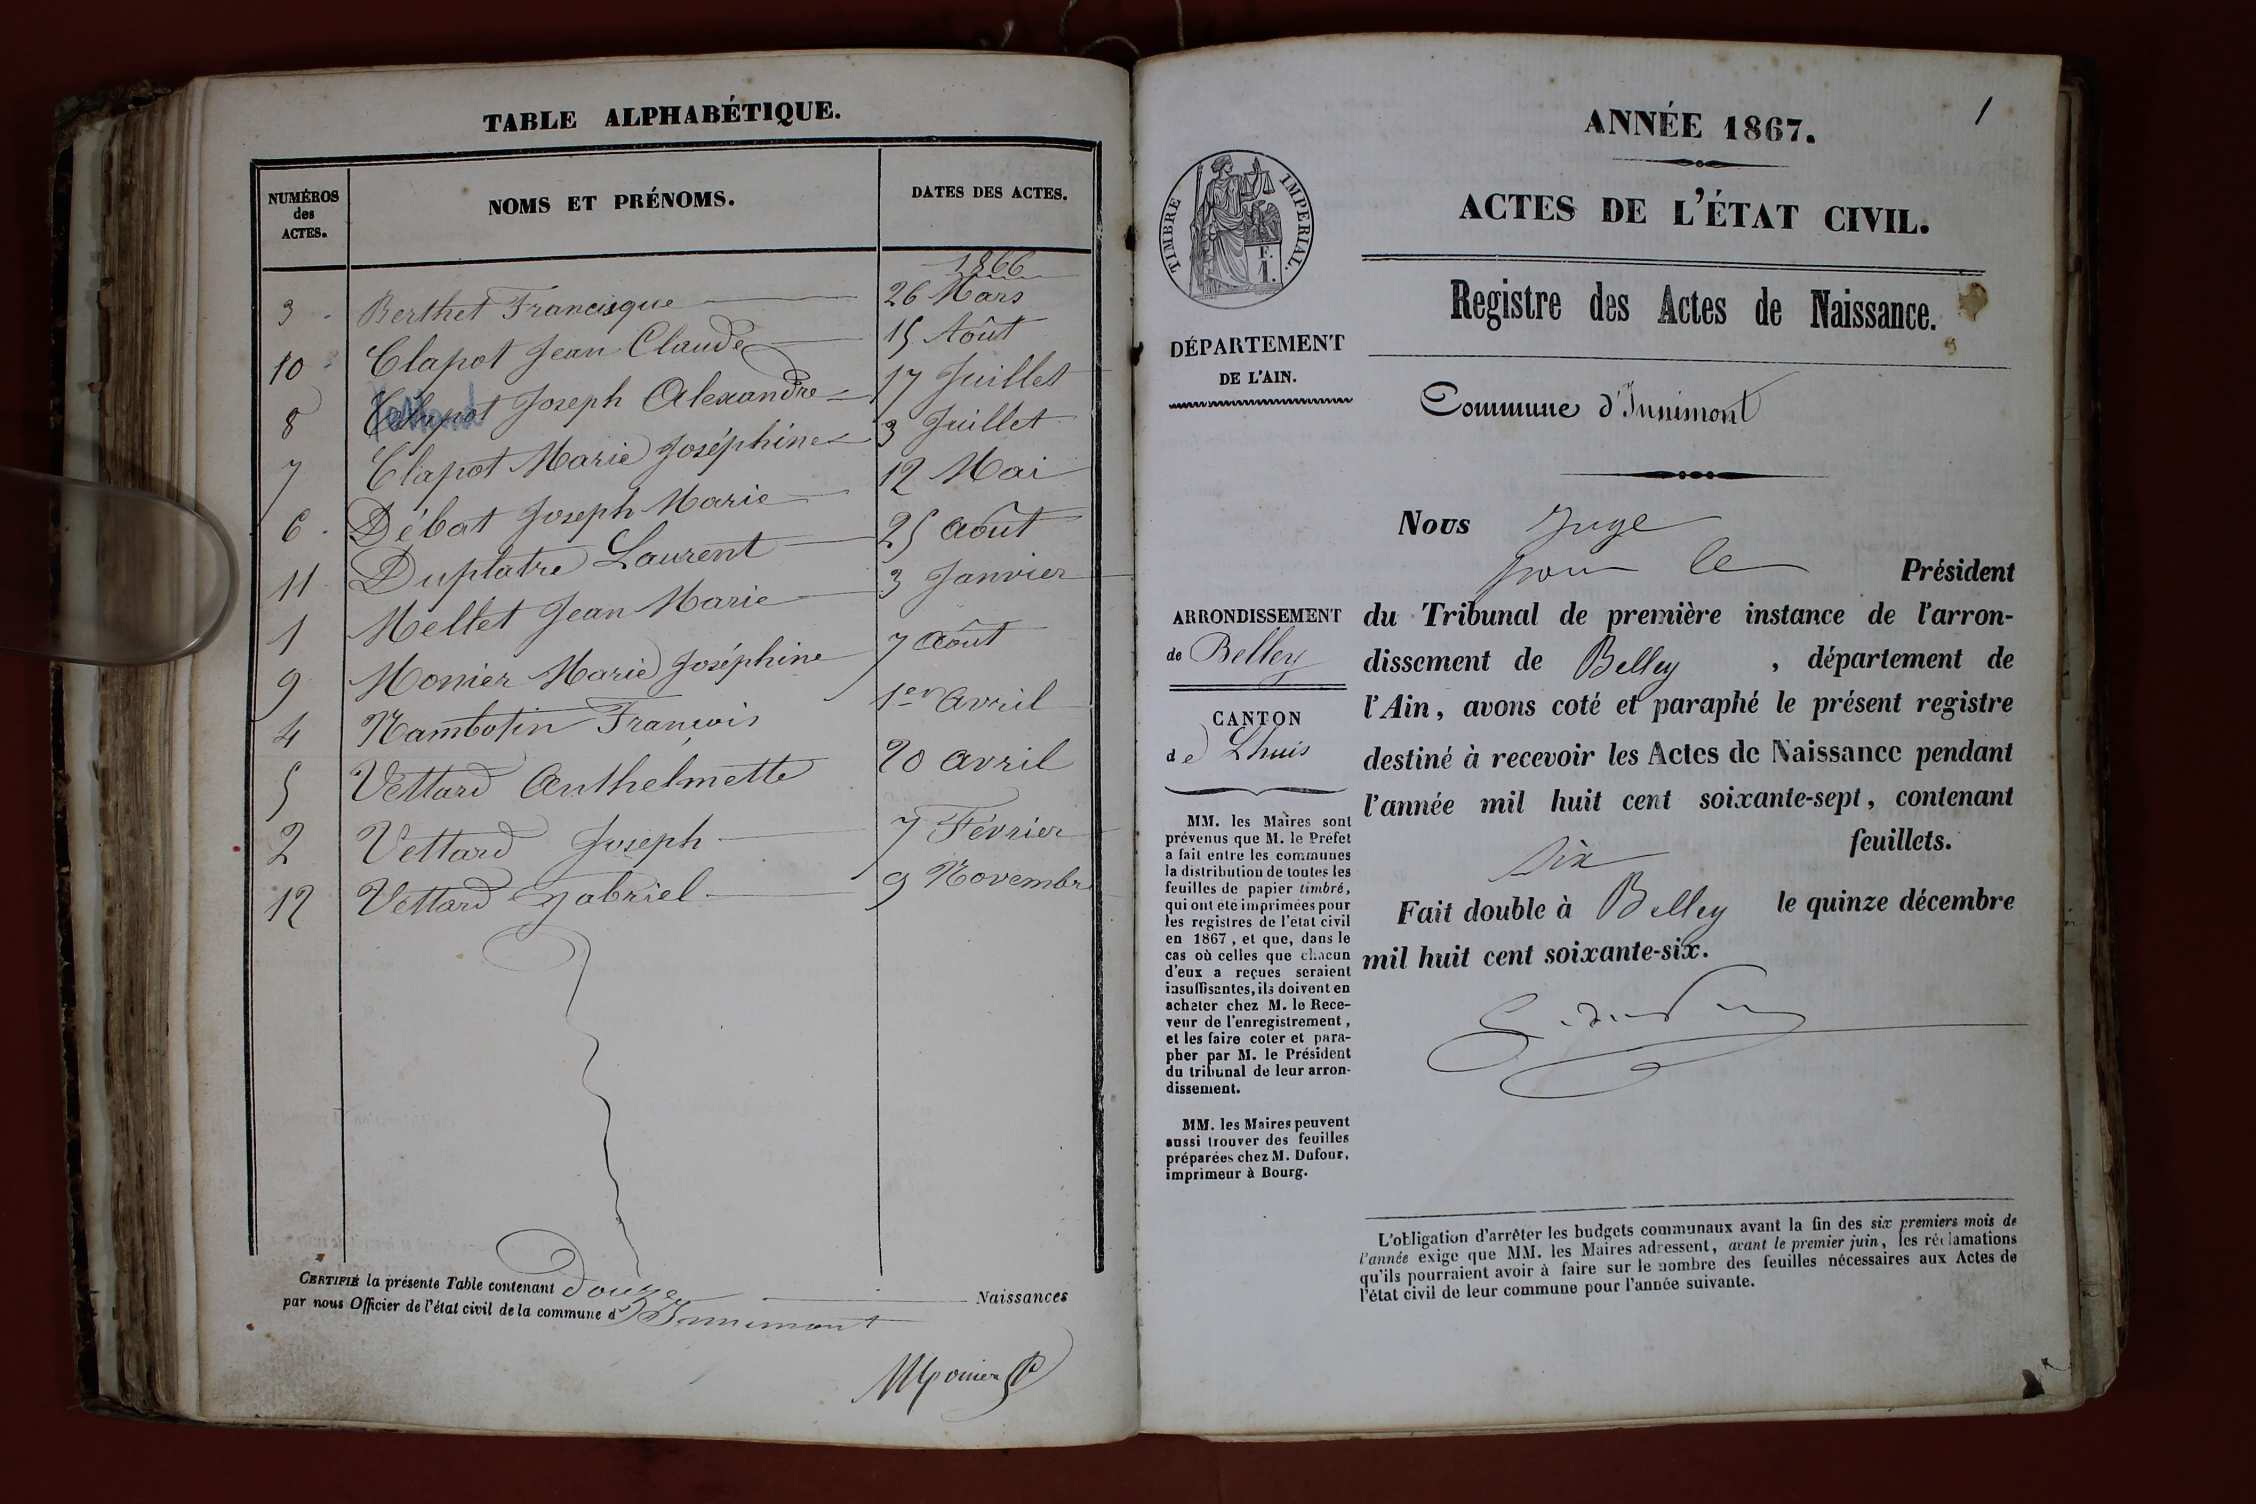 TABLE ALPHABÉTIQUE.
NUMÉROS
des
ACTES.
NOMS ET PRÉNOMS.
DATES DES ACTES.
1866
3 Berthet Francisque 26 Mars
10 Clapot Jean Claude 15 Août
8 Joseph Alexandre 17 Juillet
7 Clapot Marie Joséphine 3 Juillet
6 Débat Joseph Marie 12 Mai
11 Duplatre Laurent 25 août
1 Mellet Jean Marie 3 Janvier
9 Monier Marie Joséphine 7 août
4 Nambotin François 1er avril
5 Vettard Anthelmette 20 avril
2 Vettard Joseph 7 Février
12 Vettard Gabriel 9 Novembre
CERTIFIÉ la présente Table contenant Douze Naissances
par nous Officier de l'état civil de la commune d'Innimont
1
ANNÉE 1867.
ACTES DE L'ÉTAT CIVIL.
TIMBRE IMPÉRIAL.
F.
1.
Registre des Actes de Naissance.
DÉPARTEMENT
DE L'AIN.
Commune d'Innimont
Nous Juge
pour le Président
ARRONDISSEMENT
de Belley
CANTON
de Lhuis
du Tribunal de première instance de l'arron-
dissement de Belley, département de
l'Ain, avons coté et paraphé le présent registre
destiné à recevoir les Actes de Naissance pendant
l'année mil huit cent soixante-sept, contenant
six feuillets.
Fait double à Belley le quinze décembre
mil huit cent soixante-six.
MM. les Maires sont
prévenus que M. le Préfet
a fait entre les communes
la distribution de toutes les
feuilles de papier timbré,
qui ont été imprimées pour
les registres de l'état civil
en 1867, et que, dans le
cas où celles que chacun
d'eux a reçues seraient
insuffisantes, ils doivent en
acheter chez M. le Rece-
veur de l'enregistrement,
et les faire coter et para-
pher par M. le Président
du tribunal de leur arron-
dissement.
MM. les Maires peuvent
aussi trouver des feuilles
préparées chez M. Dufour,
imprimeur à Bourg.
L'obligation d'arrêter les budgets communaux avant la fin des six premiers mois de
l'année exige que MM. les Maires adressent, avant le premier juin, les réclamations
qu'ils pourraient avoir à faire sur le nombre des feuilles nécessaires aux Actes de
l'état civil de leur commune pour l'année suivante.